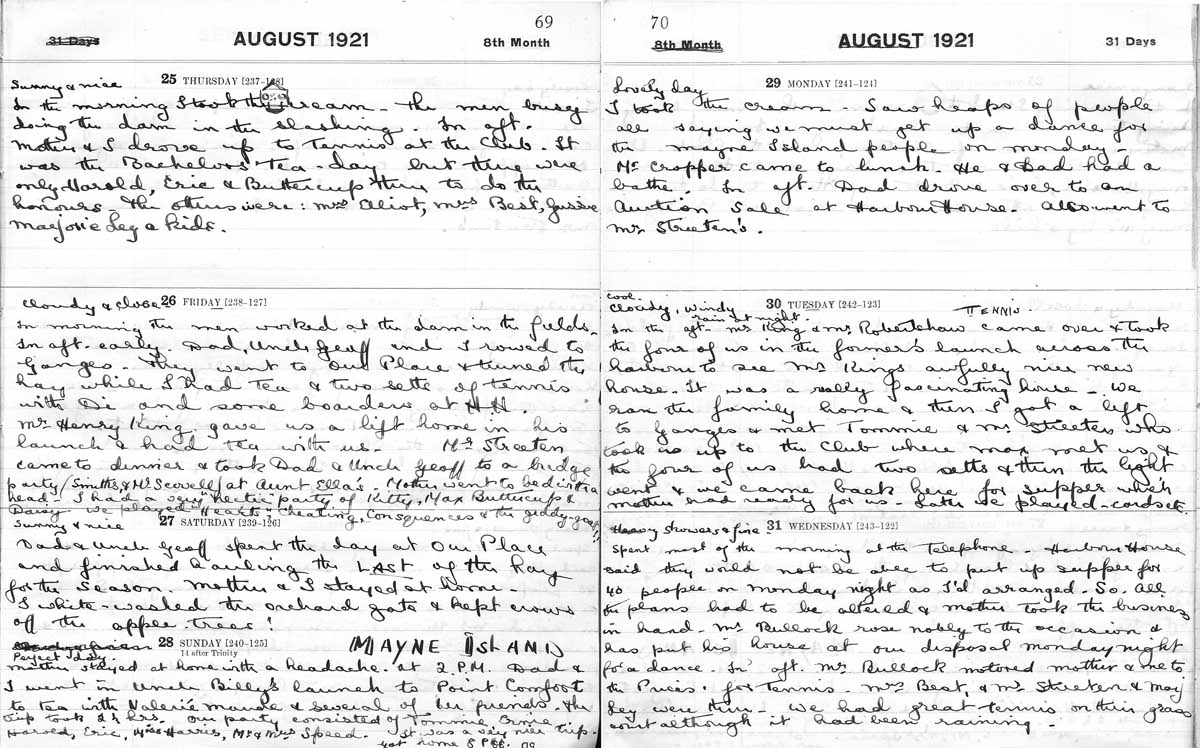 69
31 Days AUGUST 1921 8th Month
Sunny & nice 25 THURSDAY [237-128]
In the morning I took the cream - the men busy
doing the dam in the slashing. In aft.
Mother & I drove up to Tennis at the Club. It
was the Bachelors' Tea-day but there were
only Harold, Eric & Buttercup there to do the
honours. The others were: Mrs Aliot, Mrs Best, Jessie
Marjorie Ley & kids.
Cloudy & close 26 FRIDAY [238-127]
In morning the men worked at the dam in the fields.
In aft. early. Dad, Uncle Geoff and I rowed to
Ganges. They went to Our Place & turned the
hay while I had tea & two setts of tennis
with Di and some boarders at H.H.
Mr Henry King gave us a lift home in his
launch & had tea with us. Mr Streeten
came to dinner & took Dad & Uncle Geoff to a bridge
party (Smiths, & Mr Scovell) at Aunt Ella's. Mother went to bed with a
head! I had a very "hectic" party of Kitty, Max Buttercup &
Daisy we played "Hearts", Cheating, Consequences & the giddy-goat!!
Sunny & nice 27 SATURDAY [239-126]
Dad & Uncle Geoff spent the day at Our Place
and finished hauling the LAST of the hay
for the season. Mother & I stayed at home.
I white-washed the orchard gate & kept crows
off the apple trees!
28 SUNDAY [240-125] MAYNE ISLAND
Perfect day 14 after Trinity
Mother stayed at home with a headache. At 2 P.M. Dad &
I went in Uncle Billy's launch to Point Comfort
to tea with Valerie Maude & several of her friends. The
trip took 2½ hrs. Our party consisted of Tommie, Ernie,
Harold, Eric, Miss Harris, Mr & Mrs Speed. It was a very nice trip.
got home 8 P.M.
70
8th Month AUGUST 1921 31 Days
Lovely day 29 MONDAY [241-124]
I took the cream - Saw heaps of people
all saying we must get up a dance for
the Mayne Island people on Monday -
Mr Cropper came to lunch. He & Dad had a
bathe. In aft. Dad drove over to an
Auction Sale at Harbour House. Also went to
Mr Streeten's.
cool
Cloudy, windy 30 TUESDAY [242-123] TENNIS
rain at night.
In the aft. Mr King & Mr Robertshaw came over & took
the four of us in the former's launch across the
harbour to see Mr Kings awfully nice new
house. It was a really fascinating house - We
ran the family home & then I got a lift
to Ganges & met Tommie & Mr Streeten who
took us up to the Club where Max met us &
the four of us had two setts & then the light
went & we came back here for supper which
Mother had ready for us. Later we played cards etc.
Heavy showers & fine. 31 WEDNESDAY [243-122]
Spent most of the morning at the Telephone. Harbour House
said they would not be able to put up supper for
40 people on Monday night as I'd arranged. So. all
the plans had to be altered & Mother took the business
in hand. Mr Bullock rose nobly to the occasion &
has put his house at our disposal Monday night
for a dance. In aft. Mr Bullock motored Mother & me to
the Prices' for Tennis. Mrs Best, & Mr Streeten & Marj
Ley were there - We had great tennis on their grass
court although it had been raining.